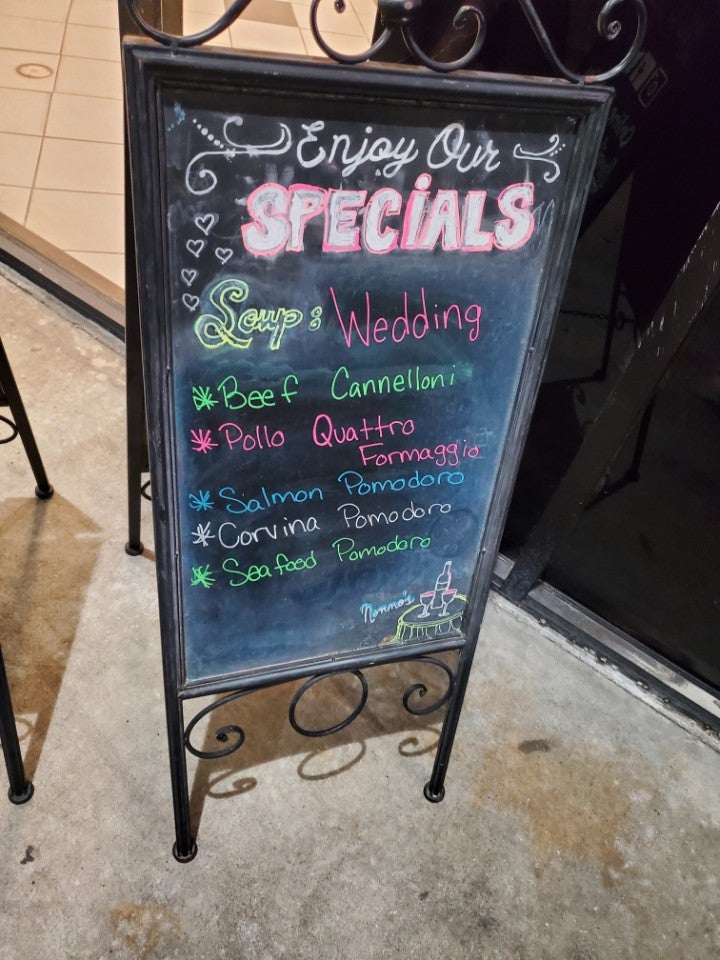 Enjoy Our
SPECiALS
Soup: Wedding
Beef Cannelloni
Pollo Quattro
Formaggio
Salmon Pomodoro
Corvina Pomodoro
Seafood Pomodoro
Nonno's